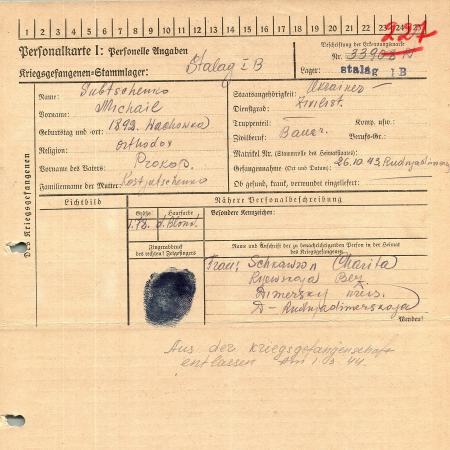 1 2 3 4 5 6 7 8 9 10 11 12 13 14 15 16 17 18 19 20 21 22 23 24 25
227
Personalkarte I: Personelle Angaben
Beschriftung der Erkennungsmarke
Nr. 33908
Kriegsgefangenen-Stammlager: Stalag I B
Lager: stalag I B
Des Kriegsgefangenen
Name: Subtschenko
Vorname: Michail
Geburtstag und -ort: 1892. Hachowka
Religion: orthodox
Vorname des Vaters: Prokop.
Familienname der Mutter: Kostjutschenko
Staatsangehörigkeit: Ukrainer
Dienstgrad: Zivilist.
Truppenteil: Komp. usw.:
Zivilberuf: Bauer. Berufs-Gr.:
Matrikel Nr. (Stammrolle des Heimatstaates):
Gefangennahme (Ort und Datum): 26.10.43
Ob gesund, krank, verwundet eingeliefert:
Lichtbild
Nähere Personalbeschreibung
Größe Haarfarbe
1.73. d.Blond.
Besondere Kennzeichen:
Fingerabdruck
des rechten! Zeigefingers
Name und Anschrift der zu benachrichtigenden Person in der Heimat
des Kriegsgefangenen:
Frau: (Charita)
Kijewskaja
Dimersky
D-Rudnjadimerskaja
Wenden!
Aus der Kriegsgefangenschaft
entlassen am 1.3.44.